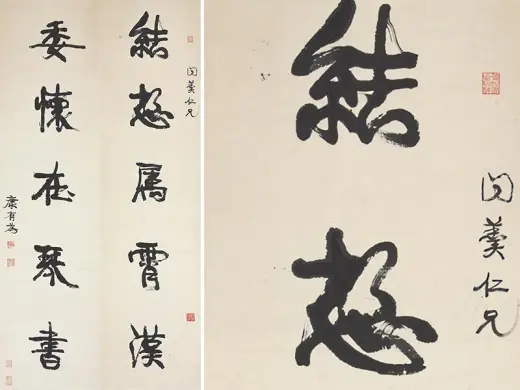 仁兄
結想屬霄漢
委懷在琴書
康有為
仁兄
結想